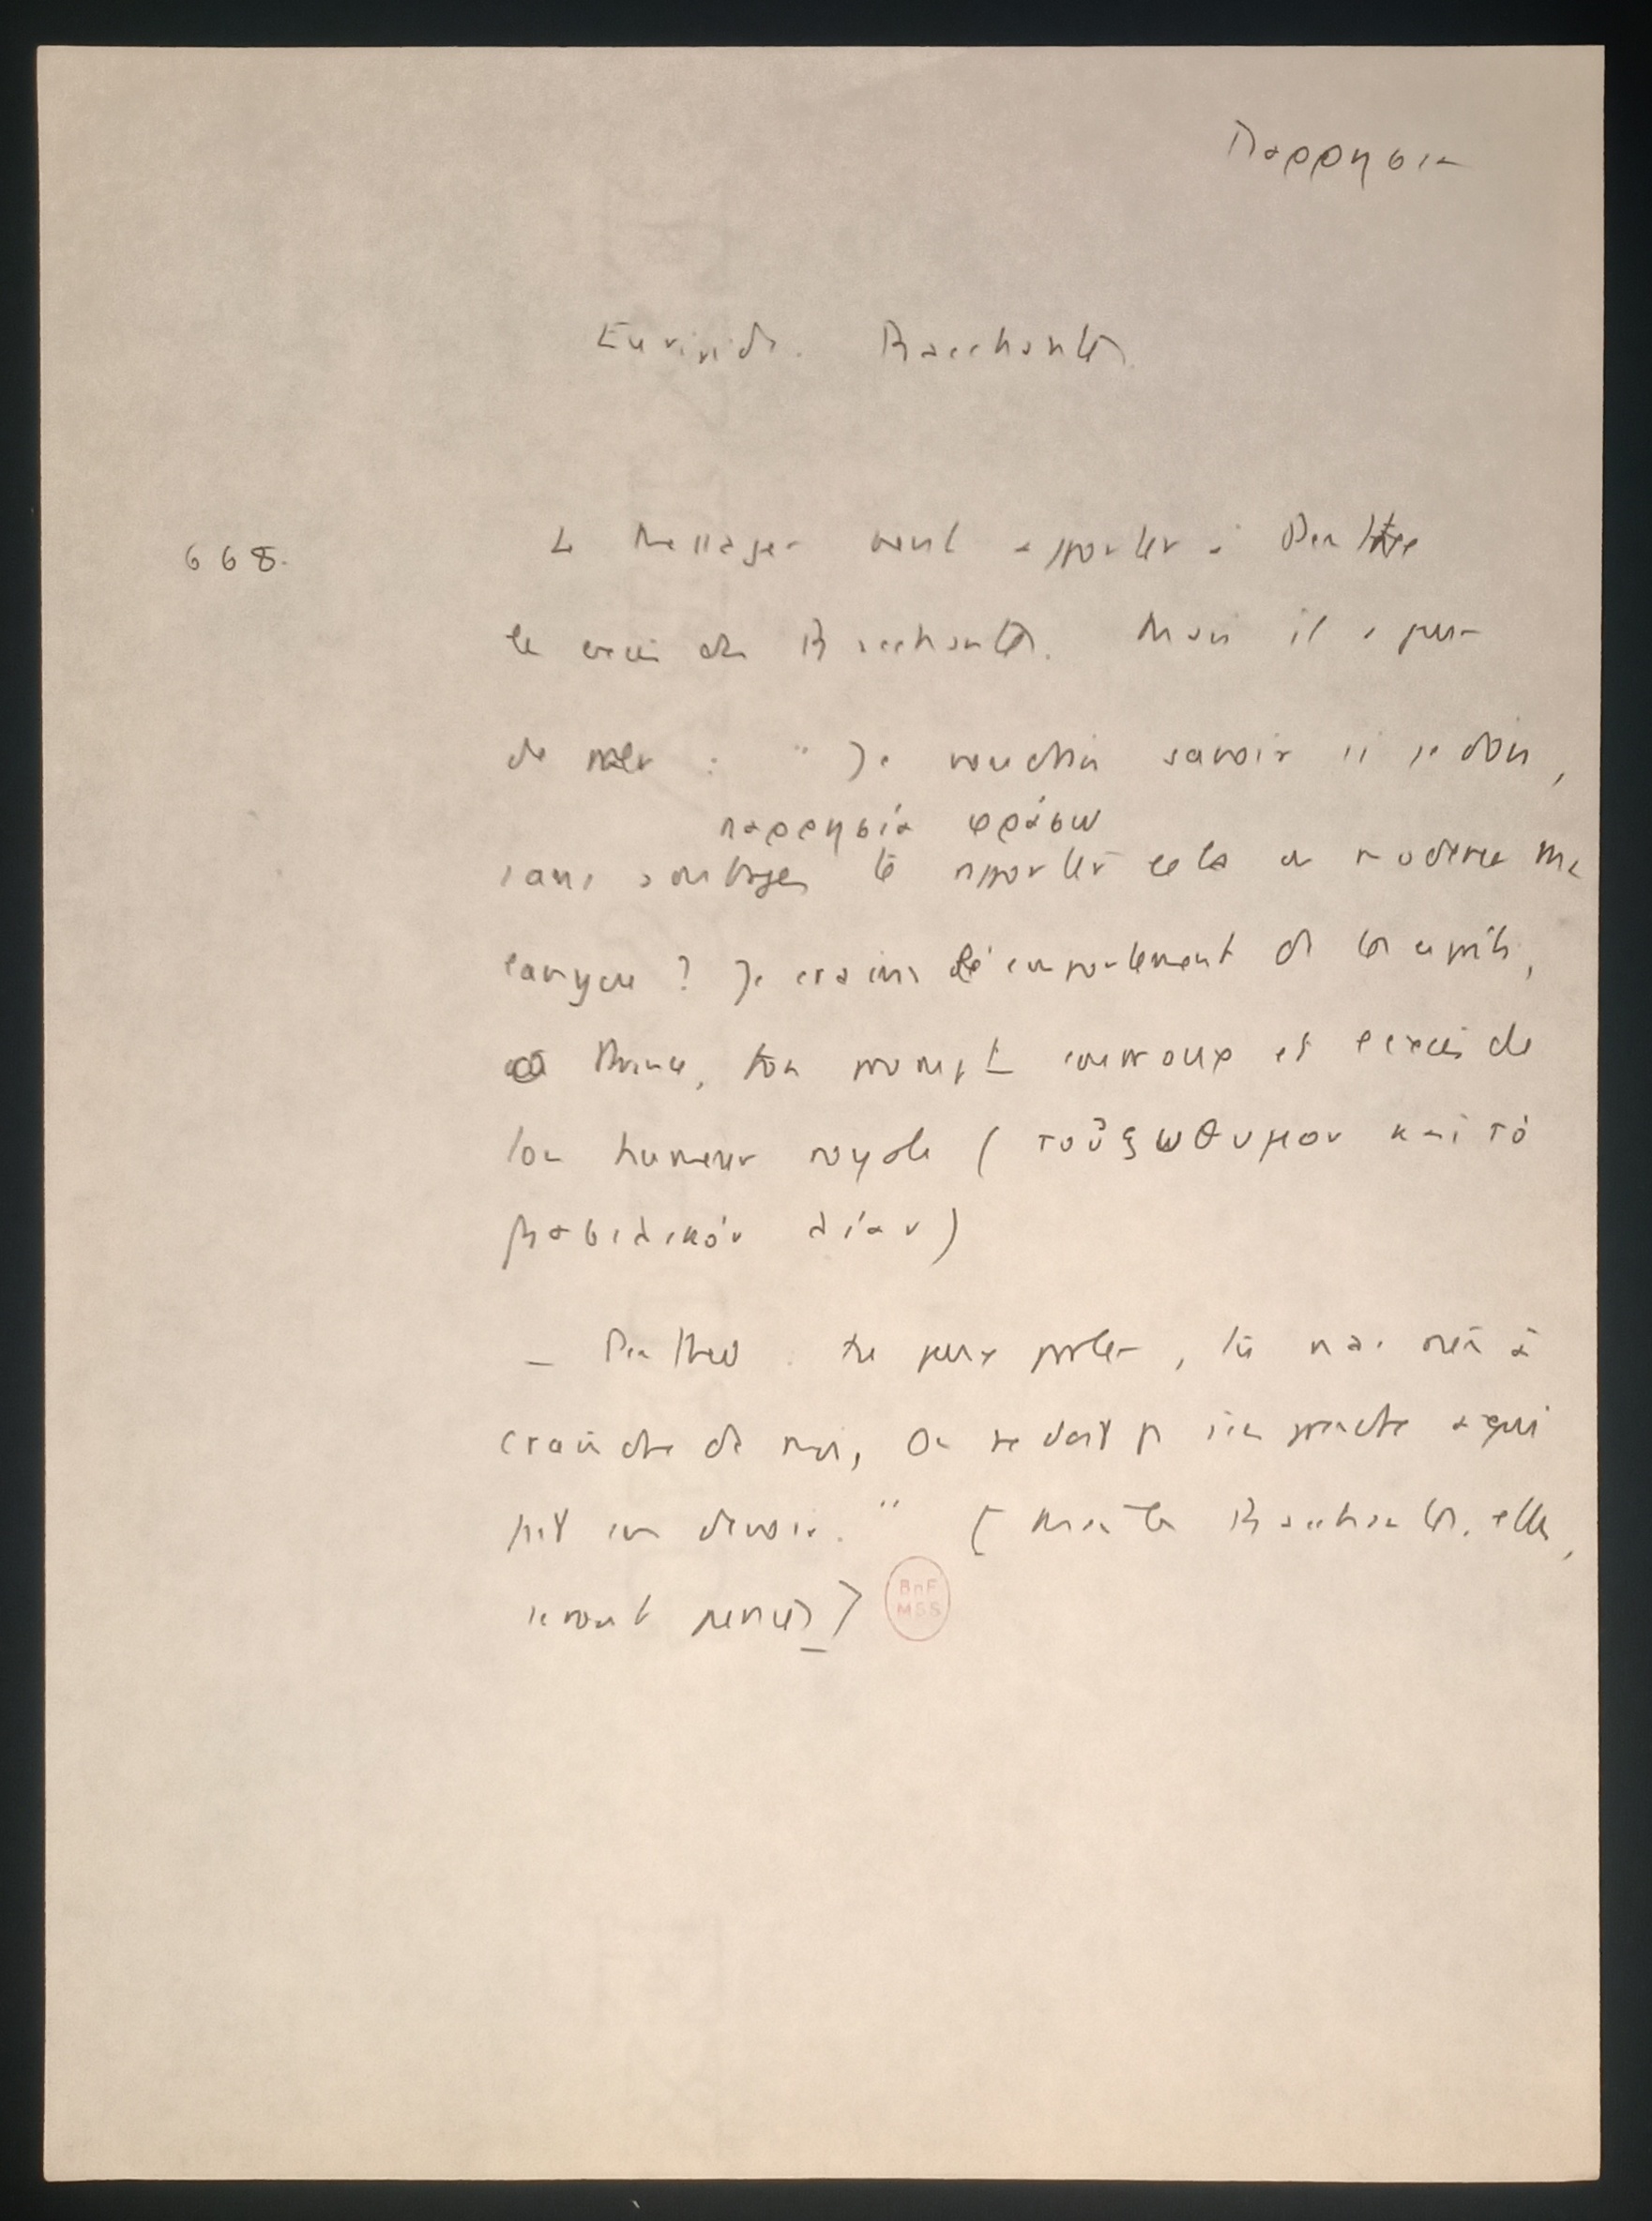 Παρρησια
Euripide. Bacchantes.
668.
Le Messager veut apporter à Penthée
le récit des Bacchantes. Mais il a peur
de parler : " Je voudrais savoir si je dois,
παρρησίᾳ φράσω
sans ambages te rapporter cela ou modérer ma
langue ? Je crains l'emportement de ton esprit,
ô Prince, ton prompt courroux et l'excès de
ton humeur royale ( τοὐξύθυμον καὶ τὸ
βασιλικόν λίαν)
_ Penthée. tu peux parler, tu n'as rien à
craindre de moi, On ne doit pas s'en prendre à qui
fait son devoir. " ( Mais les Bacchantes, elles,
seront punies)
BnF
MSS